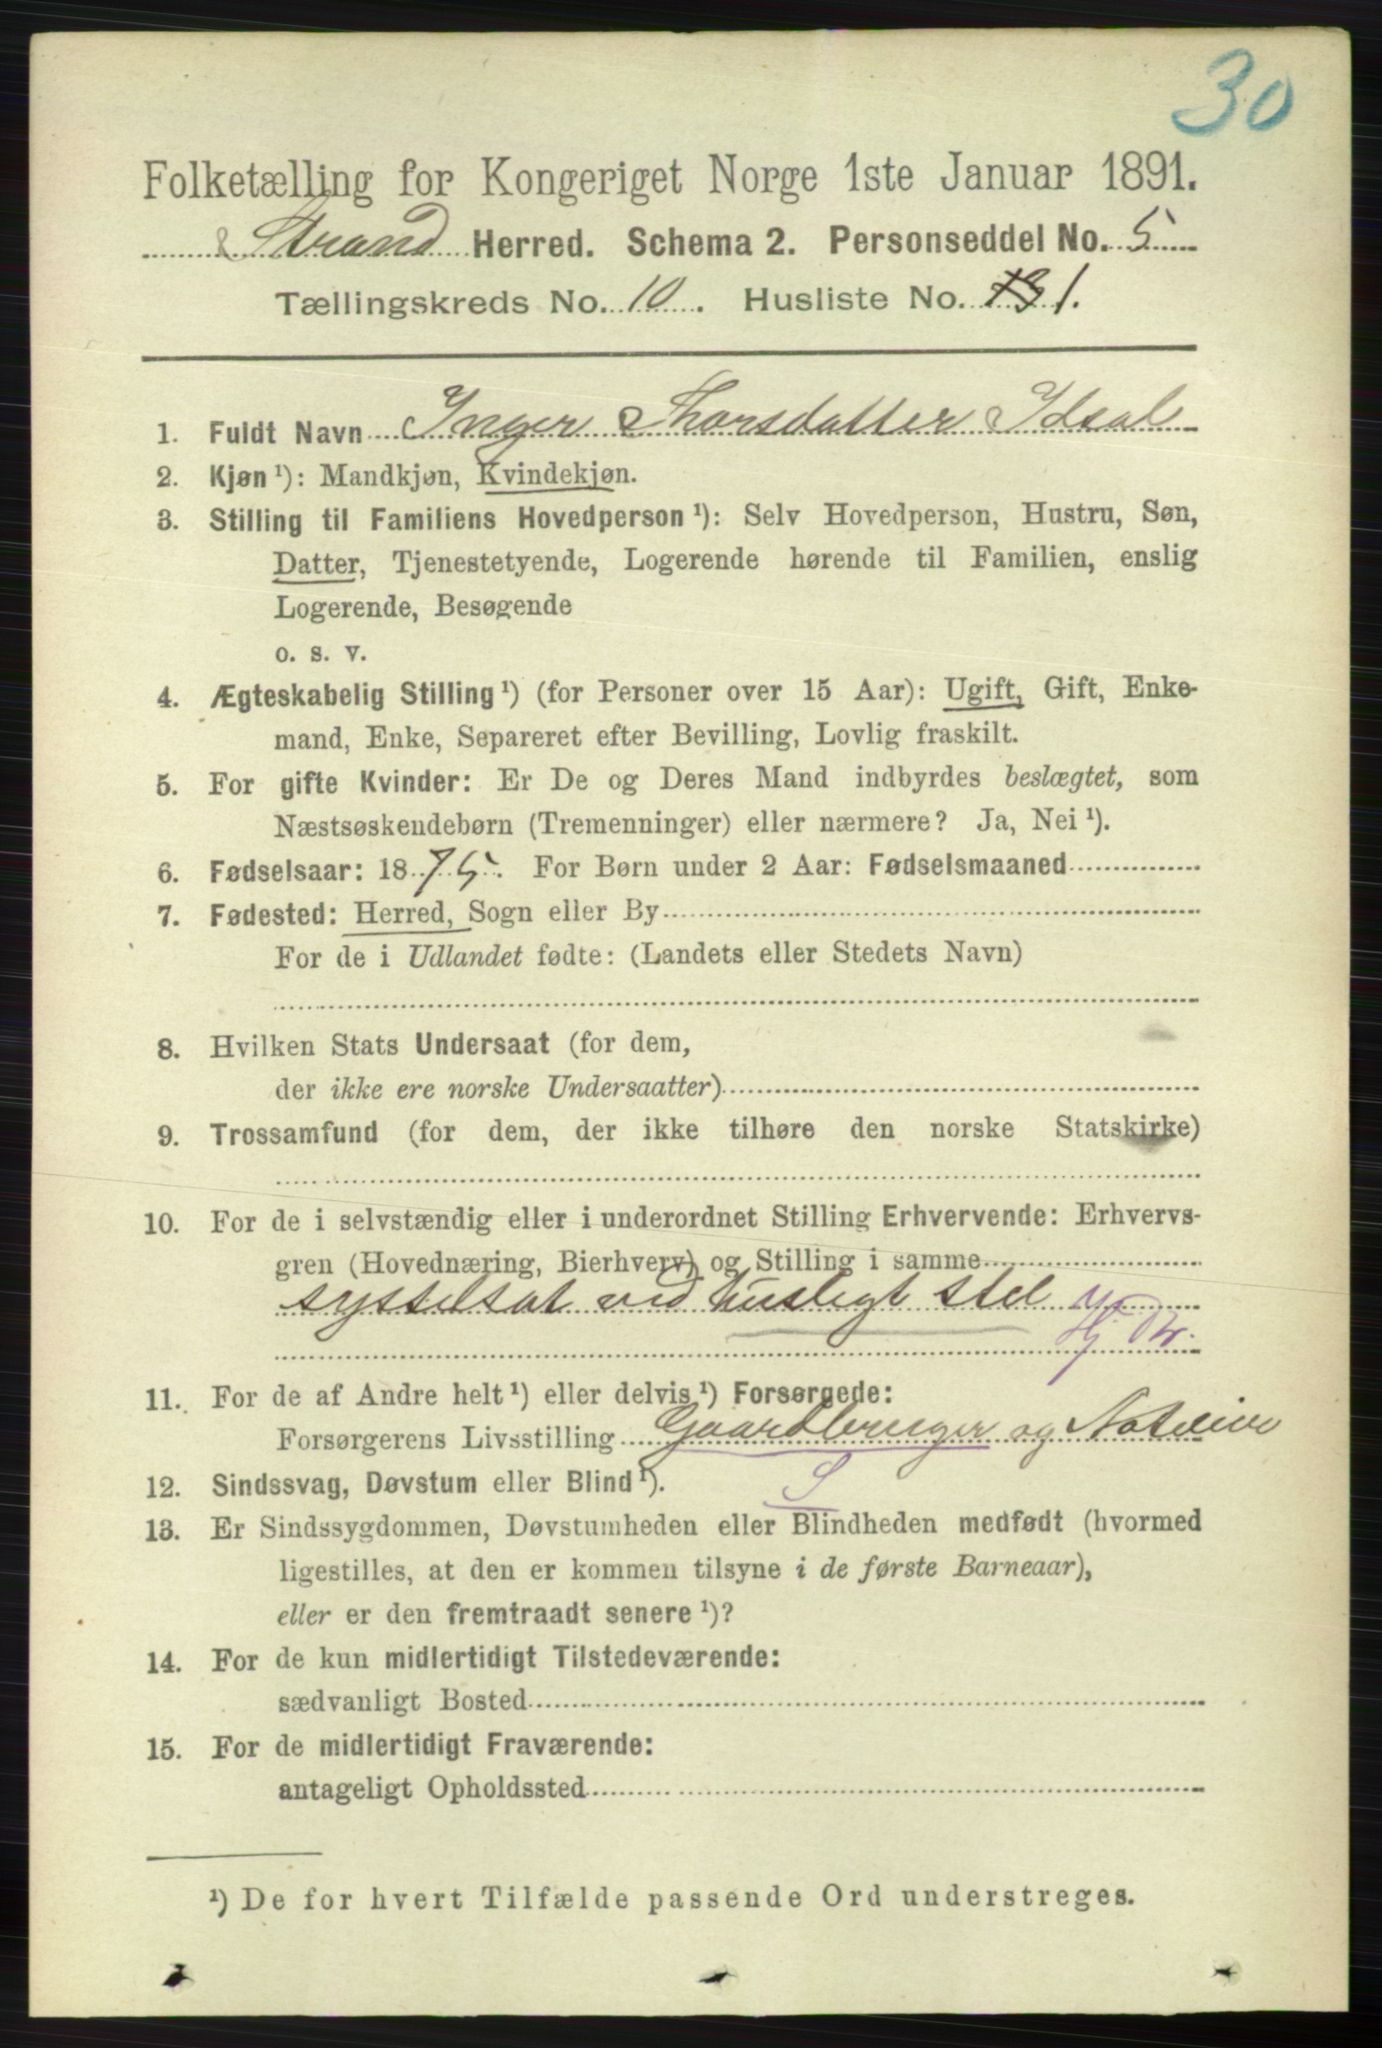 30
Folketælling for Kongeriget Norge 1ste Januar 1891.
Strand Herred. Schema 2. Personseddel No. 5
Tællingskreds No. 10. Husliste No. 1.
1. Fuldt Navn Inger Thorsdatter Idsal
2. Kjøn ¹): Mandkjøn, Kvindekjøn.
3. Stilling til Familiens Hovedperson ¹): Selv Hovedperson, Hustru, Søn,
Datter, Tjenestetyende, Logerende hørende til Familien, enslig
Logerende, Besøgende
o. s. v.
4. Ægteskabelig Stilling ¹) (for Personer over 15 Aar): Ugift, Gift, Enke-
mand, Enke, Separeret efter Bevilling, Lovlig fraskilt.
5. For gifte Kvinder: Er De og Deres Mand indbyrdes beslægtet, som
Næstsøskendebørn (Tremenninger) eller nærmere? Ja, Nei ¹).
6. Fødselsaar: 1875. For Børn under 2 Aar: Fødselsmaaned
7. Fødested: Herred, Sogn eller By
For de i Udlandet fødte: (Landets eller Stedets Navn)
8. Hvilken Stats Undersaat (for dem,
der ikke ere norske Undersaatter)
9. Trossamfund (for dem, der ikke tilhøre den norske Statskirke)
10. For de i selvstændig eller i underordnet Stilling Erhvervende: Erhvervs-
gren (Hovednæring, Bierhverv) og Stilling i samme
sysselsat ved husligt stel
11. For de af Andre helt ¹) eller delvis ¹) Forsørgede:
Forsørgerens Livsstilling Gaardbruger og Noteier
S
12. Sindssvag, Døvstum eller Blind ¹).
13. Er Sindssygdommen, Døvstumheden eller Blindheden medfødt (hvormed
ligestilles, at den er kommen tilsyne i de første Barneaar),
eller er den fremtraadt senere ¹)?
14. For de kun midlertidigt Tilstedeværende:
sædvanligt Bosted
15. For de midlertidigt Fraværende:
antageligt Opholdssted
¹) De for hvert Tilfælde passende Ord understreges.